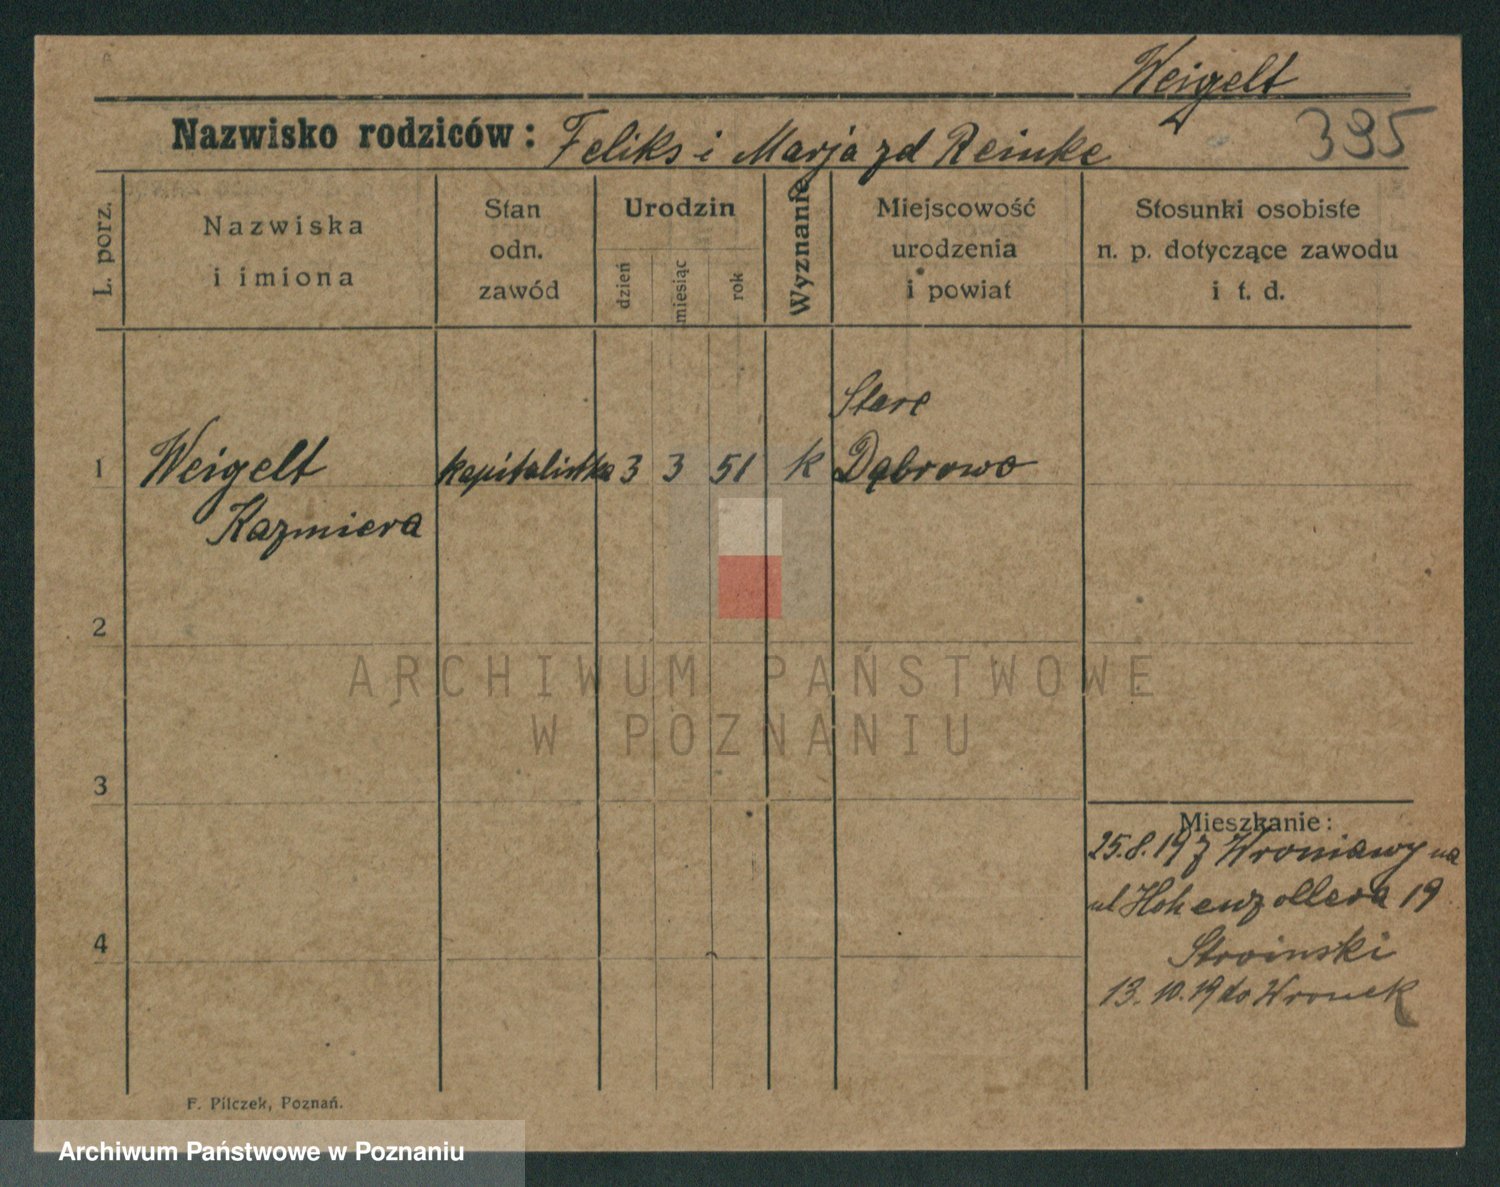 Weigelt
Nazwisko rodziców: Feliks i Marja zd Reinke
395
L. porz.
Nazwiska
i imiona
Stan
odn.
zawód
Urodzin
dzień
miesiąc
rok
Wyznanie
Miejscowość
urodzenia
i powiat
Stosunki osobiste
n. p. dotyczące zawodu
i t. d.
Stare
1 Weigelt kapitalistka 3 3 51 k Dąbrowo
Kazmiera
2
ARCHIWUM PAŃSTWOWE
W POZNANIU
3
Mieszkanie:
25.8.19 z Wroniawy na
ul Hohenzollera 19
4
Stroinski
13.10.19 do Wronek
F. Pilczek, Poznań.
Archiwum Państwowe w Poznaniu